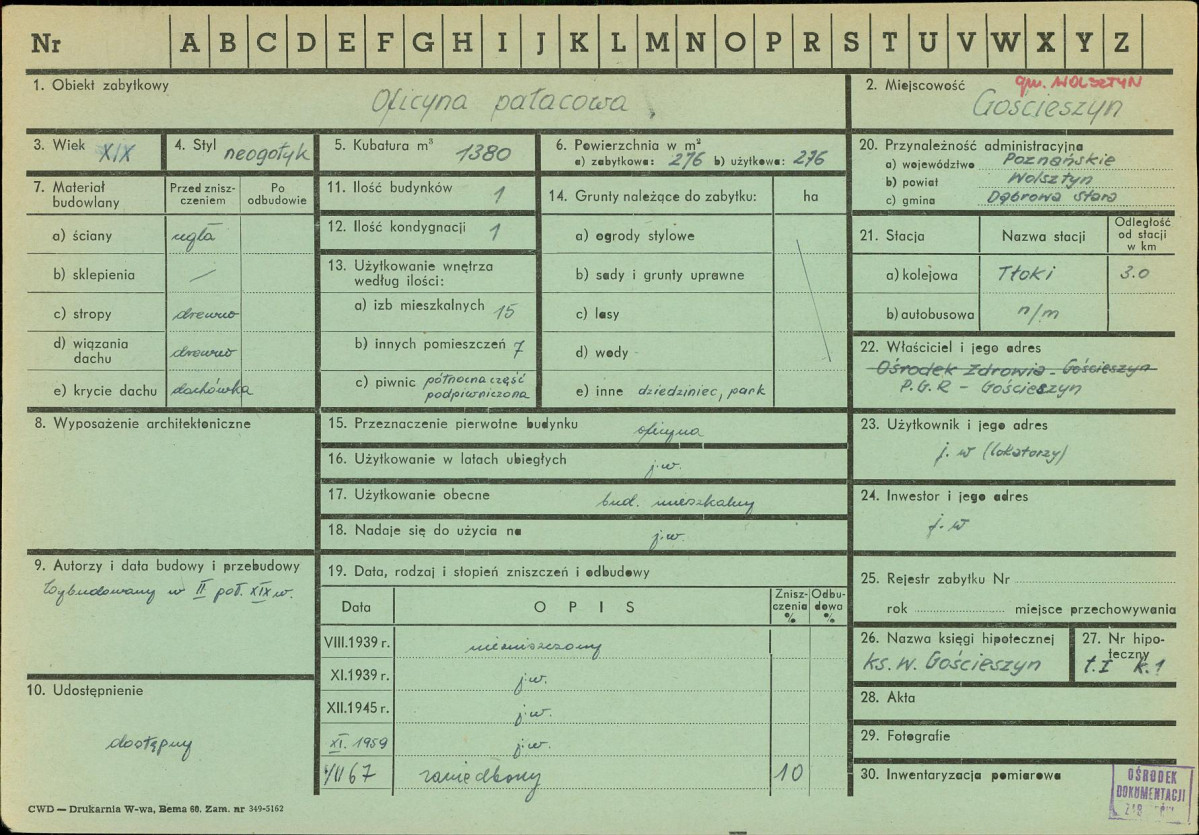 Nr A B C D E F G H I J K L M N O P R S T U V W X Y Z
1. Obiekt zabytkowy
Oficyna pałacowa
2. Miejscowość
gm. WOLSZTYN
Gościeszyn
3. Wiek XIX
4. Styl neogotyk
5. Kubatura m³ 1380
6. Powierzchnia w m²
a) zabytkowa: 276 b) użytkowa: 276
20. Przynależność administracyjna
a) województwo Poznańskie
b) powiat Wolsztyn
c) gmina Dąbrowa Stara
7. Materiał budowlany
Przed zniszczeniem
Po odbudowie
a) ściany cegła
b) sklepienia —
c) stropy drewno
d) wiązania dachu drewno
e) krycie dachu dachówka
11. Ilość budynków 1
12. Ilość kondygnacji 1
13. Użytkowanie wnętrza
według ilości:
a) izb mieszkalnych 15
b) innych pomieszczeń 7
c) piwnic północna część
podpiwniczona
14. Grunty należące do zabytku: ha
a) ogrody stylowe
b) sady i grunty uprawne
c) lasy
d) wody
e) inne dziedziniec, park
21. Stacja
Nazwa stacji
Odległość
od stacji
w km
a) kolejowa Tłoki 3.0
b) autobusowa n/m
22. Właściciel i jego adres
Ośrodek Zdrowia - Gościeszyn
P.G.R - Gościeszyn
8. Wyposażenie architektoniczne
15. Przeznaczenie pierwotne budynku oficyna
16. Użytkowanie w latach ubiegłych j.w.
17. Użytkowanie obecne bud. mieszkalny
18. Nadaje się do użycia na j.w.
23. Użytkownik i jego adres
j. w (lokatorzy)
24. Inwestor i jego adres
j. w
9. Autorzy i data budowy i przebudowy
Wybudowany w II poł. XIX w.
10. Udostępnienie
dostępny
19. Data, rodzaj i stopień zniszczeń i odbudowy
Data
OPIS
Zniszczenia %
Odbudowa %
VIII.1939 r. niezniszczony
XI.1939 r. j.w.
XII.1945 r. j.w.
XI. 1959 j.w.
67 zaniedbany 10
25. Rejestr zabytku Nr
rok miejsce przechowywania
26. Nazwa księgi hipotecznej
ks. w. Gościeszyn
27. Nr hipoteczny
t. I k. 1
28. Akta
29. Fotografie
30. Inwentaryzacja pomiarowa
OŚRODEK
DOKUMENTACJI
CWD — Drukarnia W-wa, Bema 60. Zam. nr 349-5162